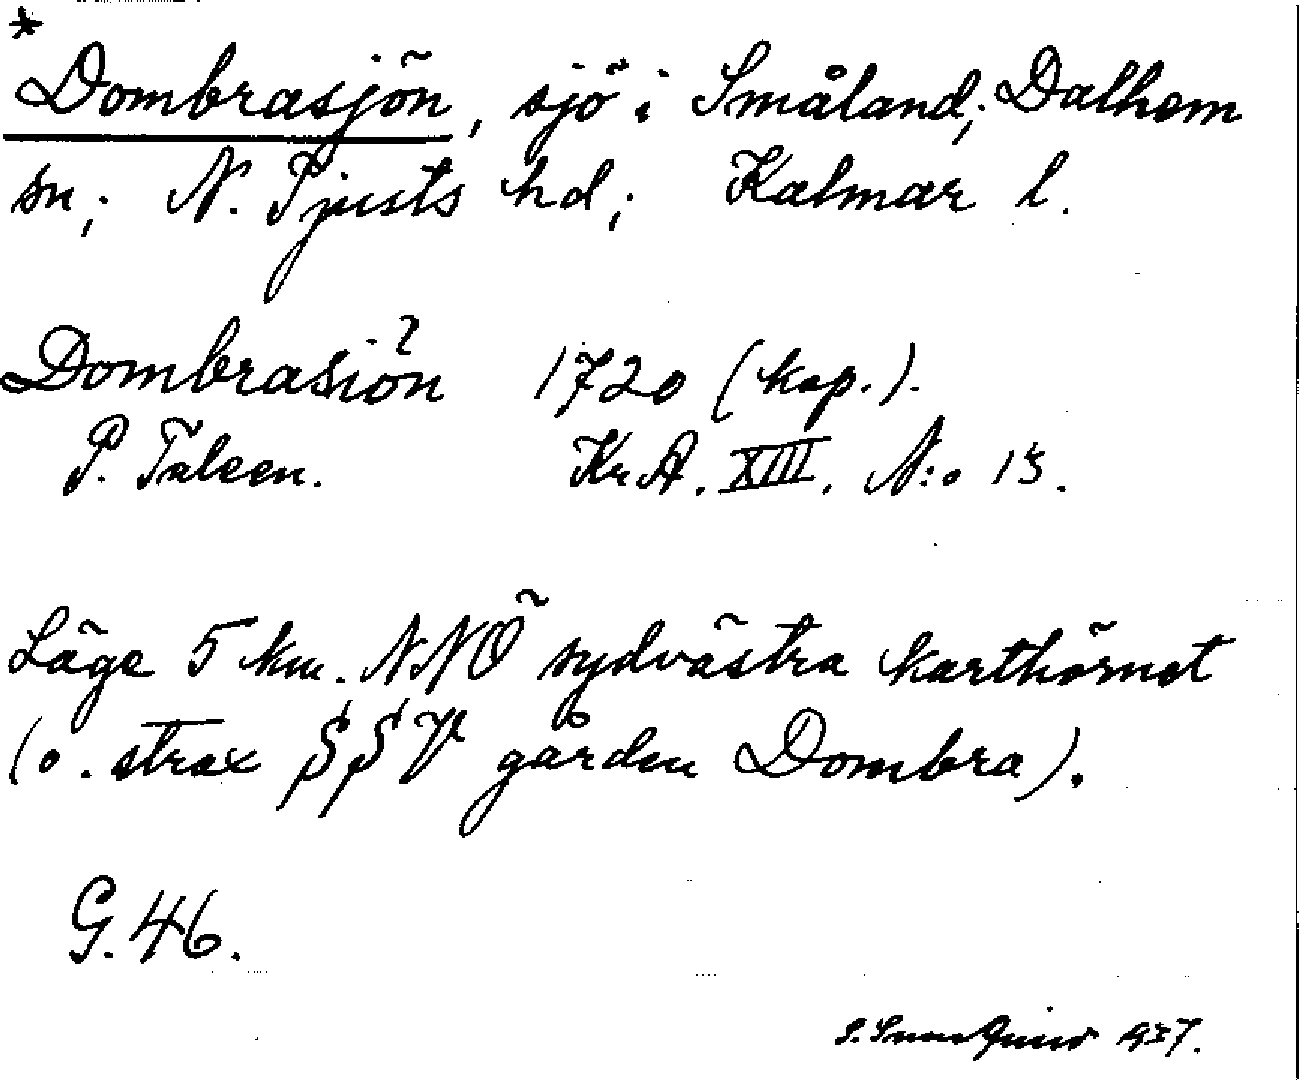 *
Dombrasjön, sjö i Småland; Dalhem
sn; N. Tjusts hd; Kalmar l.
Dombrasiön? 1720 (kop.).
P. Tåleen. Kr.A. XIII. N:o 15.
Läge 5 km. NNÖ sydvästra karthörnet
(o. strax SSV gården Dombra).
G. 46.
1937.